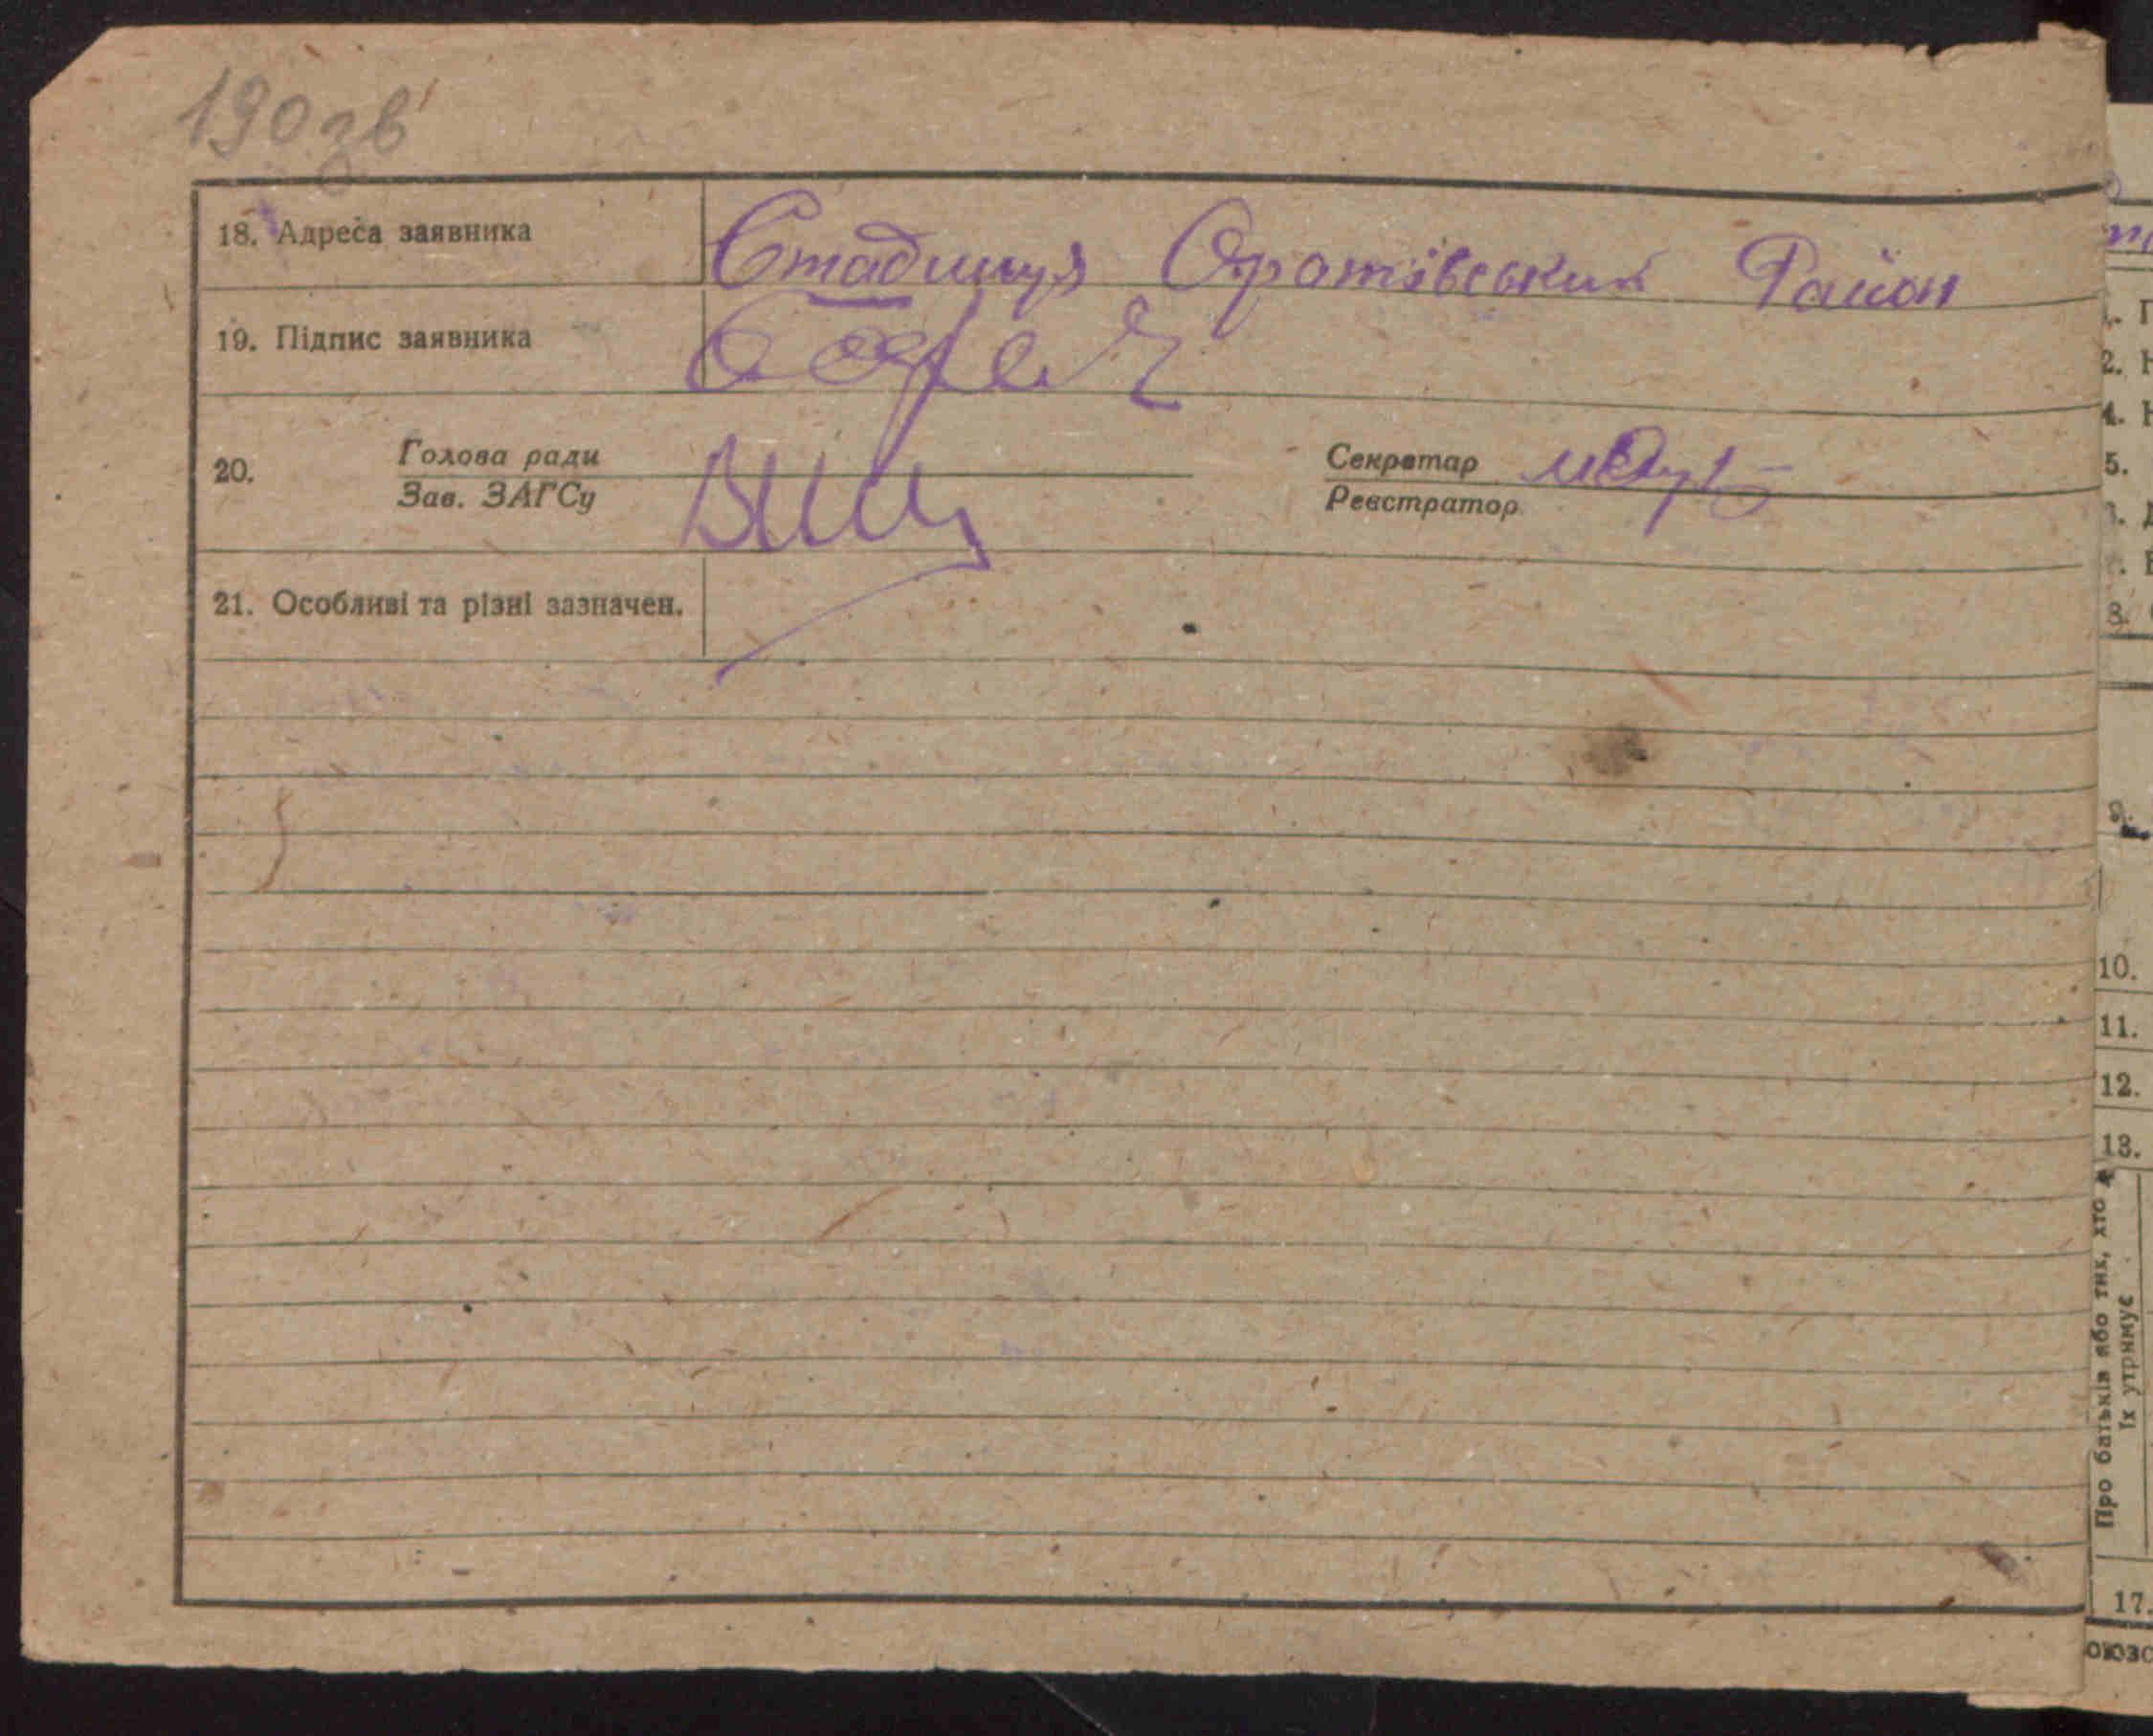 190 зв
18. Адреса заявника Стадниця Оратівський Район
19. Підпис заявника
20. Голова ради Секретар
Зав. ЗАГСу Реєстратор
21. Особливі та різні зазначен.
8.
9.
10.
11.
12.
13.
Про батьків або тих, хто
їх утримує
17.